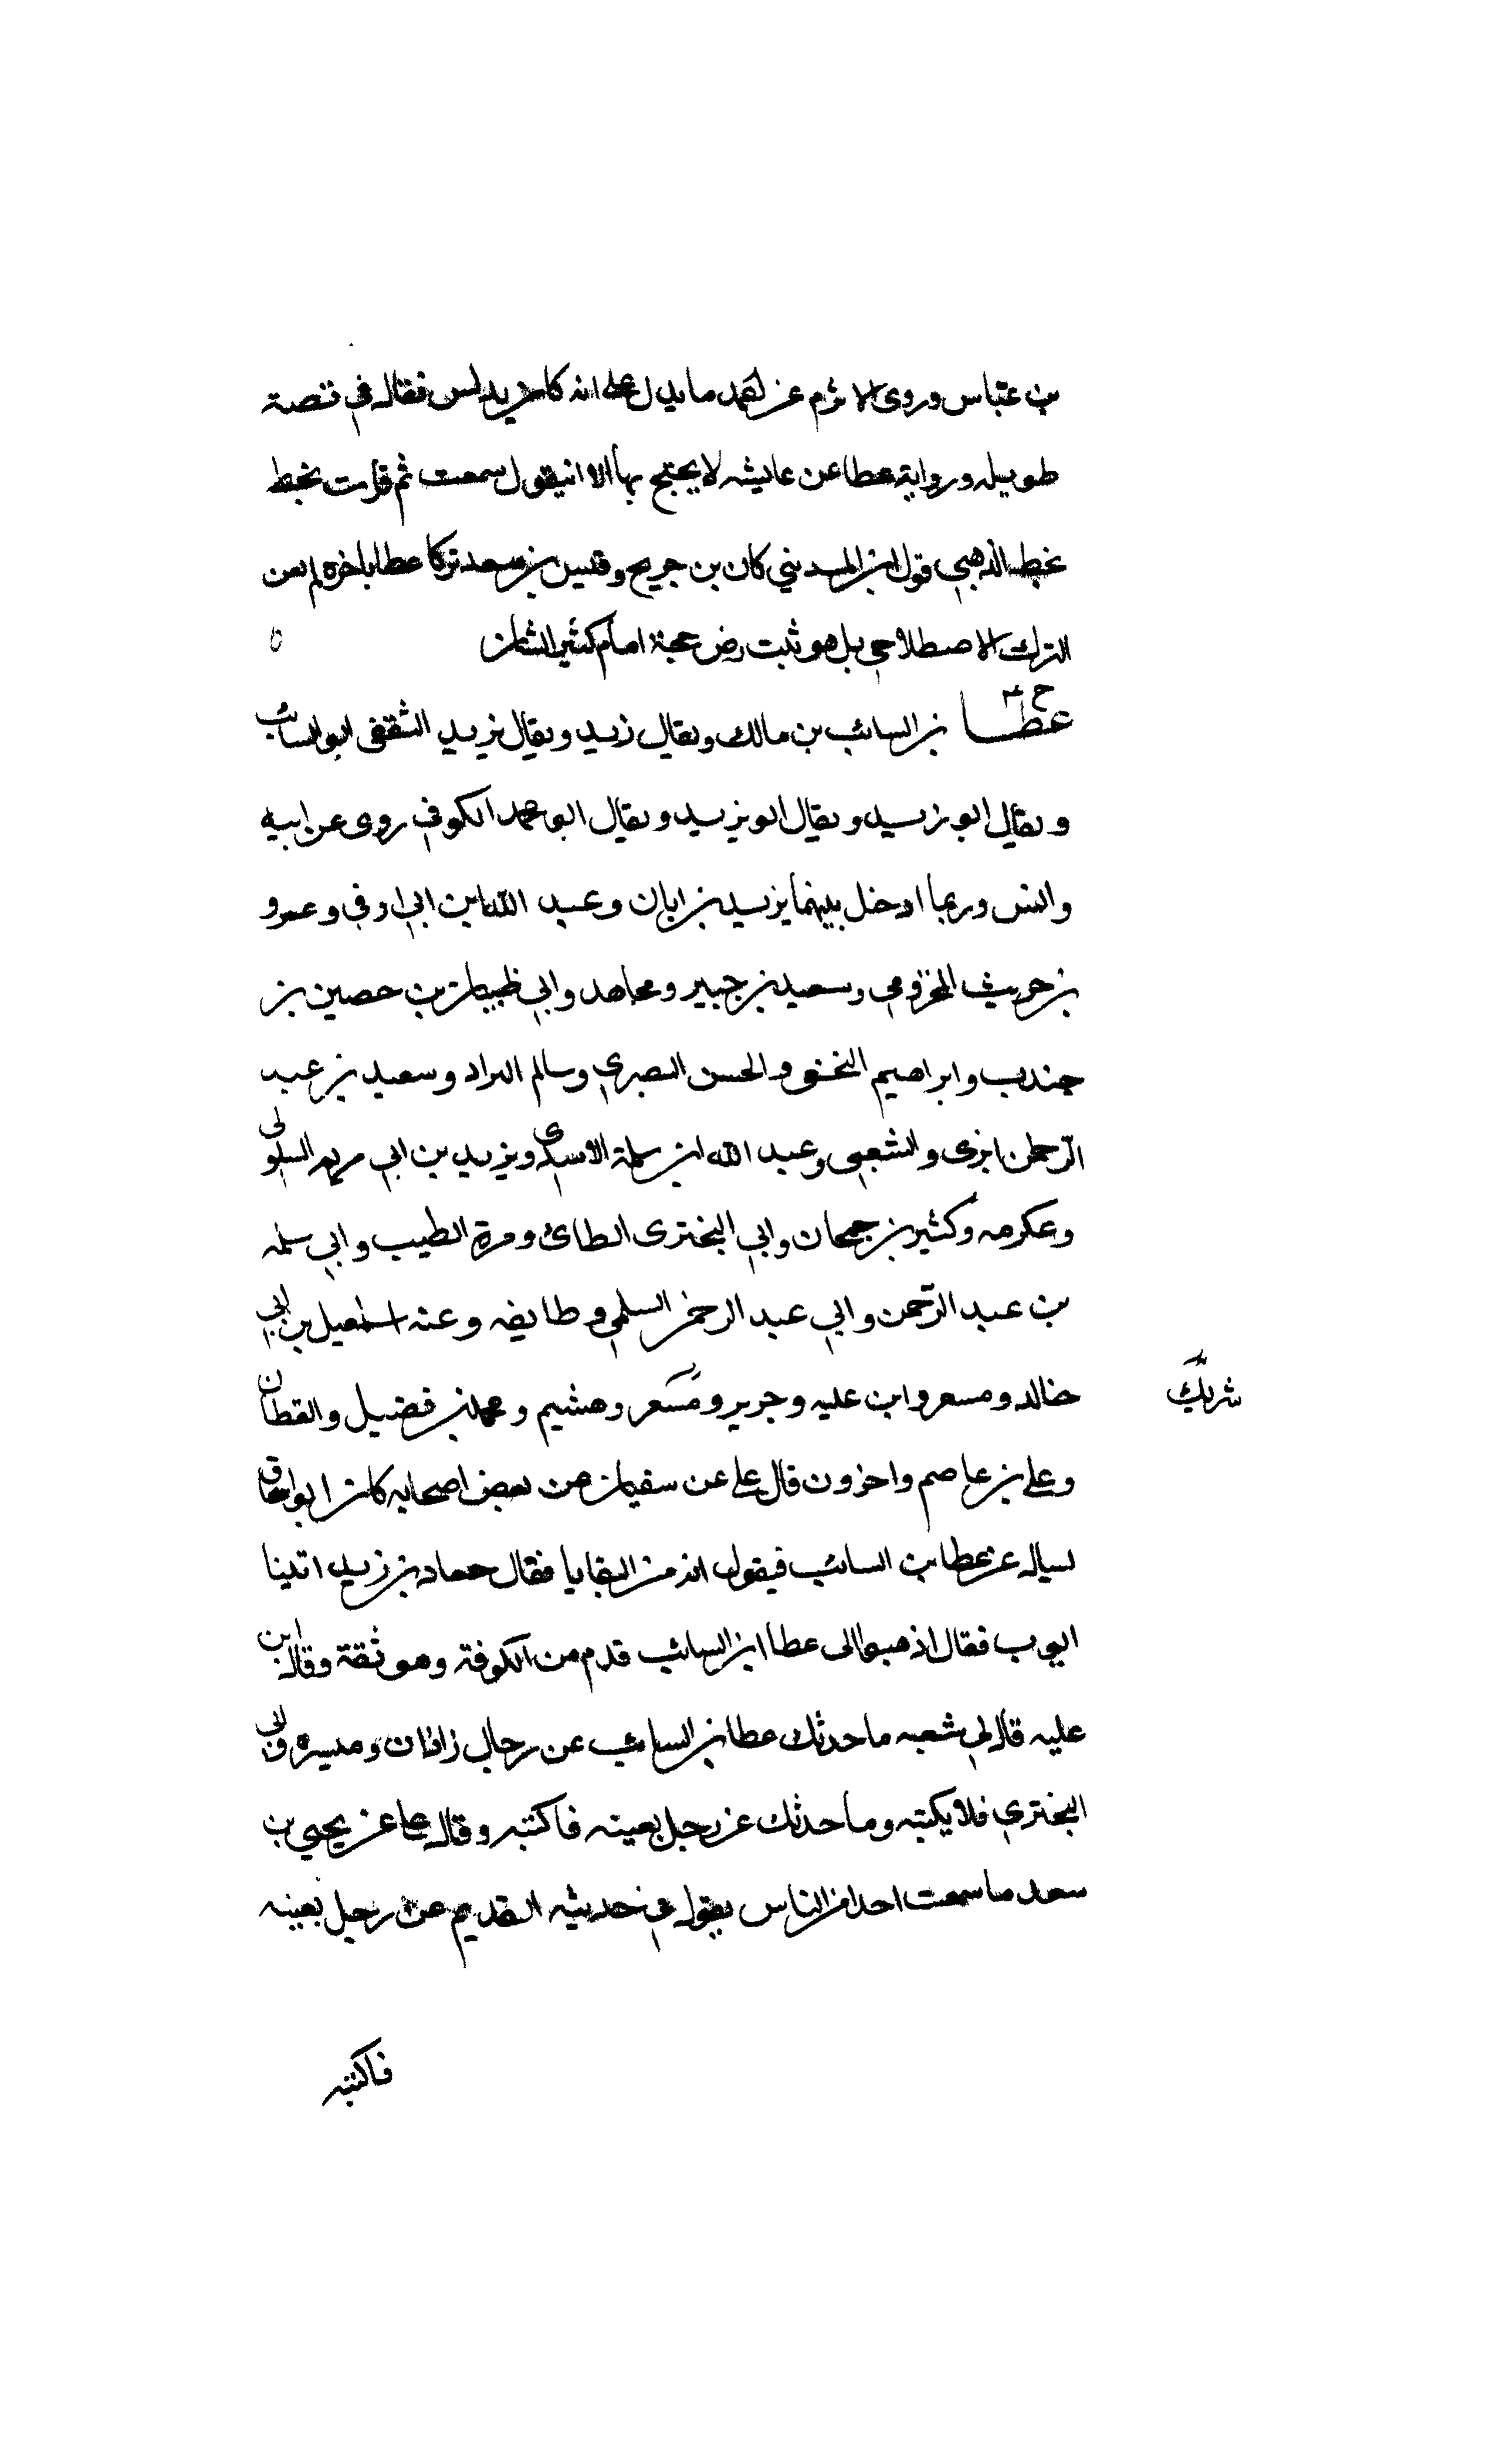 بن عباس وروى الاثرم عن احمد ما يدل على انه كان يدلس فقال في قصة
طويله ورواية عطا عن عايشه لا يحتج بها الا ان يقول سمعت ثم قرات بخط
بخط الذهبي قول ابن المديني كان بن جريح وقيس بن سعد تركا عطا باخره لم يعن
الترك الاصطلاحي بل هو ثبت رضي حجة امام كبير الشان
عطا بن السائب بن مالك ويقال زيد ويقال يزيد الثقفى ابو السائب
ويقال ابو زيد ويقال ابو يزيد ويقال ابو محمد الكوفي روى عن ابيه
وانس وربما ادخل بينهما يزيد بن ابان وعبد الله بن ابي اوفى وعمرو
بن حريث المخزومي وسعيد بن جبير ومجاهد وابي ظبيان بن حصين بن
جندب وابراهيم النخعى والحسن البصري وسالم البراد وسعيد بن عبد
الرحمن ابزى والشعبى وعبد الله ابن سلمة الاسدى ويزيد بن ابي مريم السلولى
وعكرمه وكثير بن جمهان وابي البخترى الطائ ومرة الطيب وابي سلمه
بن عبد الرحمن وابي عبد الرحمن السلمي وطايفه وعنه اسمعيل بن ابي
خالد ومسعر وابن عليه وجرير ومسعر وهشيم ومحمد بن فضيل والقطان
شريك
وعلي بن عاصم واخرون قال علي عن سفيان عن بعض اصحابه كان ابو اسحاق
يساله عن عطا بن السائب فيقول انه من البقايا فقال حماد بن زيد اتينا
ايوب فقال اذهبوا الى عطا ابن السائب قدم من الكوفة وهو ثقة وقال ابن
عليه قال لي شعبه ما حدثك عطا بن السائب عن رجال زاذان وميسره وابي
البختري فلا يكتبه وما حدثك عن رجل بعينه فاكتبه وقال علي عن يحيى بن
سعد ما سمعت احدا من الناس يقول في حديثه القديم عن رجل بعينه
فاكتبه